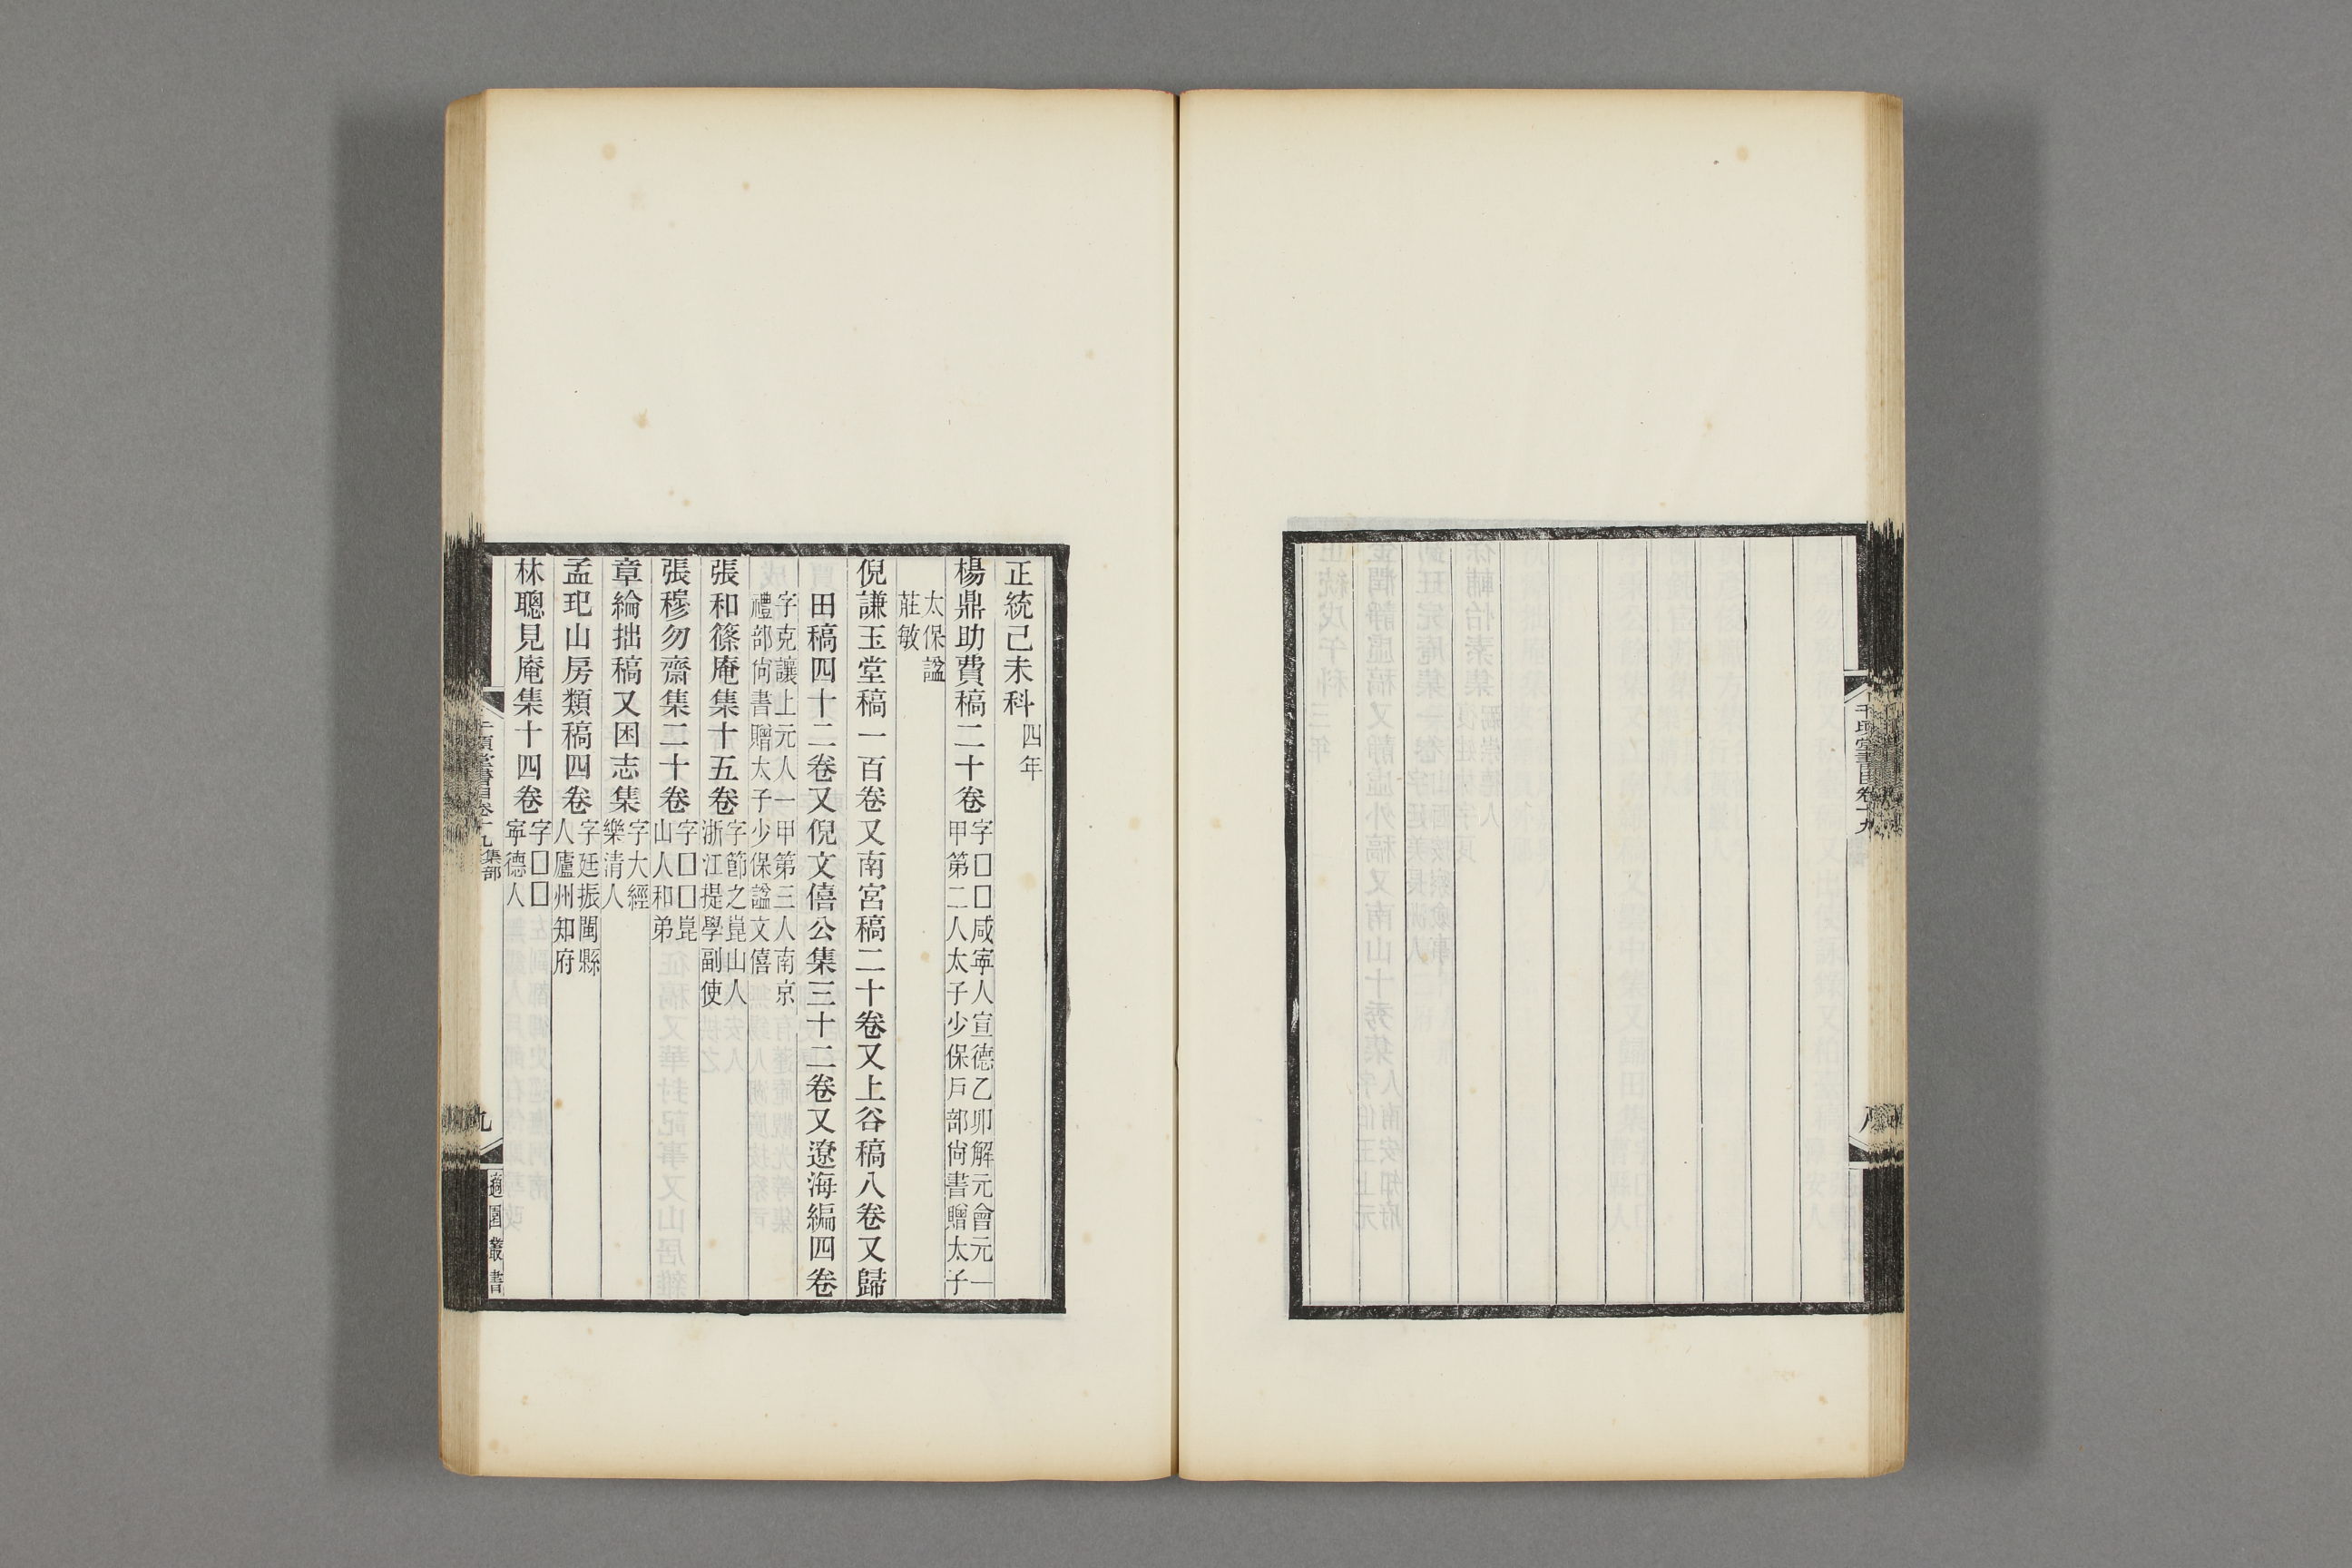 千頃堂書目卷十九
八
正統己未科四年
楊鼎助費稿二十卷字□□咸寧人宣德乙卯解元會元一
甲第二人太子少保戶部尙書贈太子
太保諡
莊敏
倪謙玉堂稿一百卷又南宮稿二十卷又上谷稿八卷又歸
田稿四十二卷又倪文僖公集三十二卷又遼海編四卷
字克讓上元人一甲第三人南京
禮部尙書贈太子少保諡文僖
張和篠庵集十五卷字節之崑山人
浙江提學副使
張穆勿齋集二十卷字□□崑
山人和弟
章綸拙稿又困志集字大經
樂清人
孟玘山房類稿四卷字廷振閩縣
人廬州知府
林聰見庵集十四卷字□□
寧德人
千頃堂書目卷十九集部
九
適園叢書